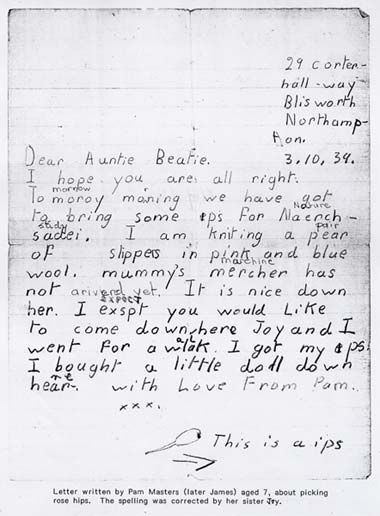 29 corter-
hall-way
Blisworth
Northamp-
ton.
Dear Auntie Beatie.
3.10,39.
I hope you are all right.
morrow r
To moroy moning we have got
Nature
to bring some ips for Naerch-
study pair
sadei. I am kniting a pear
of slippers in pink and blue
marchine
wool. mummy's mercher has
not ariverd yet. It is nice down
EXPECT
her. I exspt you would Like
to come down, here Joy and I
went for a walk. I got my ips
I bought a little doll down
here. with Love From Pam.
xxx.
This is a ips
Letter written by Pam Masters (later James) aged 7, about picking
rose hips. The spelling was corrected by her sister Joy.